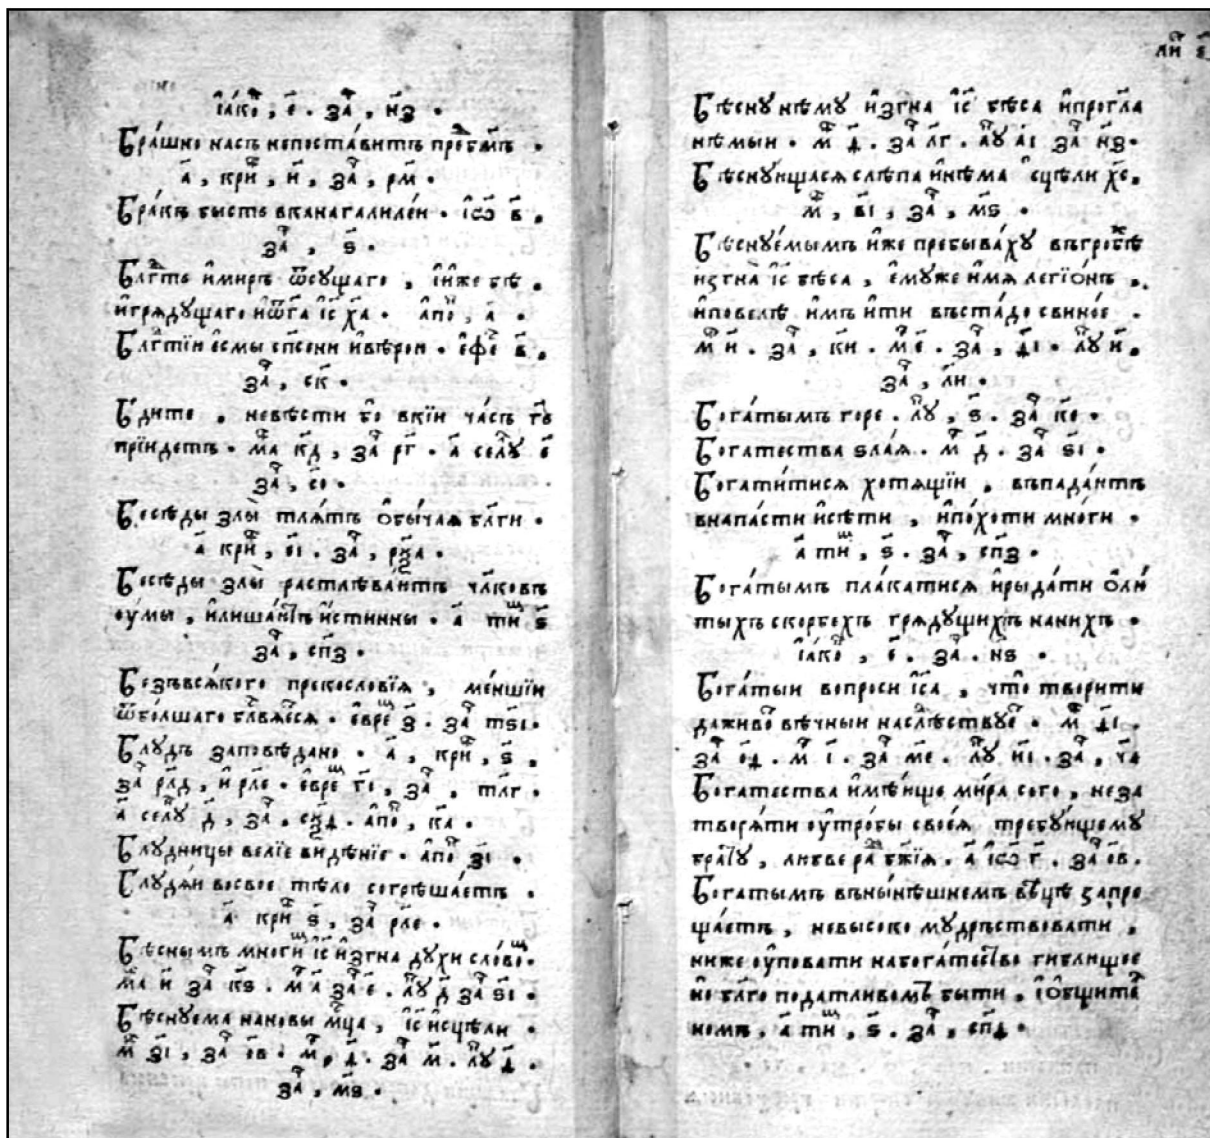 іа́ко , е҃ . за , нз .
Бра́шно насъ непоста́витъ пре бм҃ъ .
а҃ , кри , и҃ , за , рм .
Бра́къ бысть вканагалиле́и . іѡ в҃ .
за , ѕ҃ .
Блг҃ть и҆миръ ѿсущаго , и҆и҆же бѣ .
и҆грядущаго и҆ѿга іс҃ ха҃ . а҆по , а҃ .
Блг҃тїи є҆смы сп҃сени и҆вѣрои . є҆фе в҃ .
за , ск .
Бдите , невѣсти бо вкїи ча́съ гь҃
прїидетъ . ма кд , за рг . а҃ селу е҃
за , со .
Бесѣды злы̀ тля́тъ о҆бы́чая бл҃ги .
а҃ кри , еі . за , рѯа .
Бесѣды злы̀ растлѣва́итъ чл҃ковъ
оумы , и҆лиша́итъ и҆стинны . а҃ ти ѕ҃
за , спз .
Безъвся́кого прекословїя , ме́ншїи
ѿбо́лшаго бл҃вяе҆ся . є҆вре з҃ . за тѕі .
Блудъ заповѣдано . а҃ , кри , ѕ҃ ,
за рлд , и҆ рле . є҆вре гі , за , тлг .
а҃ селу д҃ , за , сѯд . а҆по , ка .
Блудницы велїе видѣнїе . а҆по зі .
Блудя́и восвое тѣло согрѣша́етъ .
а҃ кри ѕ҃ , за рле .
Бѣснымъ многи іс҃ и҆згна духи сло́во .
ма и҃ за кѕ . м а҃ за е҃ . лу д҃ за ѕі .
Бѣснуема нановы мца , іс҃ исцѣли .
м зі , за ов . м , д҃ . за м . лу д҃ .
за , мѕ .
ли
Бѣснунѣму и҆згна іс҃ бѣса и҆прогла
нѣмыи . м д҃ . за лг . лу аі за нз .
Бѣсну́ищася слѣпа и҆нѣма сцѣли хс҃ .
м , ві , за , мѕ .
Бѣснуе́мымъ и҆же пребыва́ху въгробѣ
изгна іс҃ бѣса , є҆муже и҆мя легїо́нъ ,
и҆повелѣ и҆мъ ити въста́до свино́е .
м и҃ . за , ки . м е҃ . за , ді . лу и҃ .
за , ли .
Бога́тымъ горе . лу , ѕ҃ . за ке .
Богатества ѕла́я . м д҃ . за ѕі .
Богати́тися хотящїи , въпада́итъ
внапасти и҆сѣти , и҆по́хоти многи .
а҃ ти , ѕ҃ . за , спз .
Бога́тымъ пла́катися и҆рыда́ти о҆лю́
тыхъ скорбехъ грядущихъ наних .
іако , е҃ . за . нѕ .
Бога́тыи вопроси іс҃а , что̀ творити
даживо вѣчныи наслѣствуе . м ді .
за од . м і҃ . за ме . лу иі . за , ча
Богатества и҆мѣ́ище ми́ра сего , неза
творя́ти оутробы своея̀ требу́ищему
бра́ту , любве ра бж҃їя . а҃ іѡ г҃ . за ов .
Богатымъ вны́нѣшнемъ вѣцѣ запре
ща́етъ , невысоко мудръствовати ,
ниже оуповати набога́тество гиблищее
но бл҃гоподатливомъ быти , і҆о҆бщите
номъ , а҃ ти , ѕ҃ . за , спд .